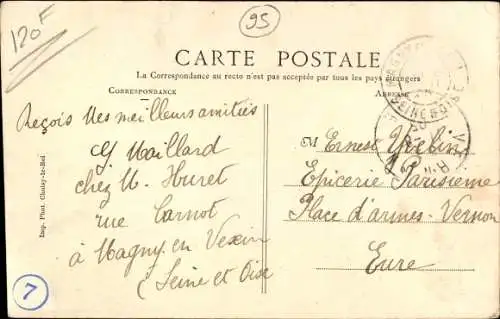 120F
95
CARTE POSTALE
La Correspondance au recto n'est pas acceptée par tous les pays étrangers
CORRESPONDANCE
ADRESSE
SEINE & OISE
Reçois Mes meilleurs amitiés
Maillard
chez M. Huret
rue Carnot
à Magny en Vexin
(Seine et Oise
M Ernest Yvelin
Epicerie Parisienne
Place d'armes - Vernon
Eure
Imp. Phot.
7